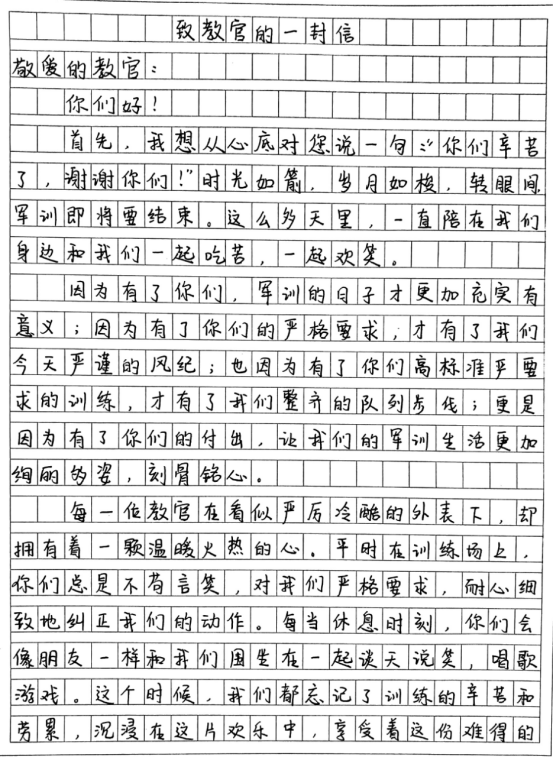 致教官的一封信
敬爱的教官：
你们好！
首先，我想从心底对您说一句：“你们辛苦
了，谢谢你们！”时光如箭，岁月如梭，转眼间
军训即将要结束。这么多天里，一直陪在我们
身边和我们一起吃苦，一起欢笑。
因为有了你们，军训的日子才更加充实有
意义；因为有了你们的严格要求，才有了我们
今天严谨的风纪；也因为有了你们高标准严要
求的训练，才有了我们整齐的队列步伐；更是
因为有了你们的付出，让我们的军训生活更加
绚丽多姿，刻骨铭心。
每一位教官在看似严厉冷酷的外表下，却
拥有着一颗温暖火热的心。平时在训练场上，
你们总是不苟言笑，对我们严格要求，耐心细
致地纠正我们的动作。每当休息时刻，你们会
像朋友一样和我们围坐在一起谈天说笑，唱歌
游戏。这个时候，我们都忘记了训练的辛苦和
劳累，沉浸在这片欢乐中，享受着这份难得的